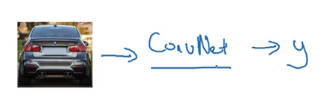 ConvNet y